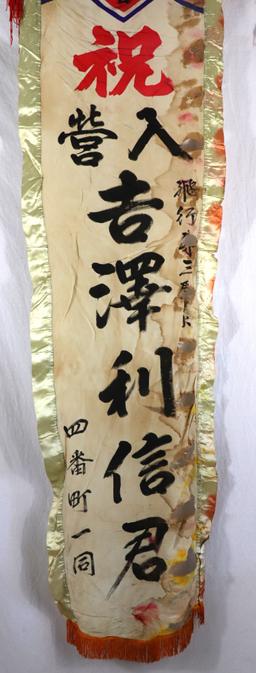 祝
入營
飛行第三
吉澤利信君
四番町一同